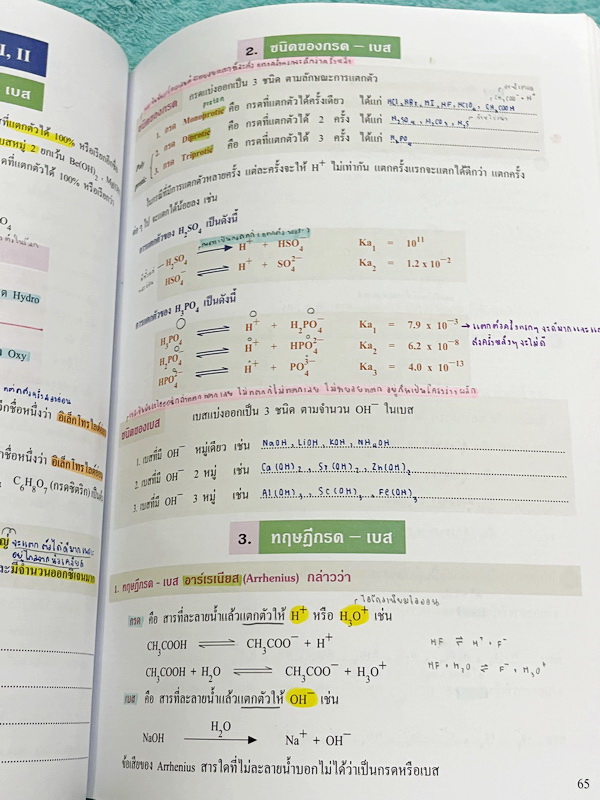 I, II
เบส
ที่แตกตัวได้ 100% หรือเรียกอีกชื่อ
เบสหมู่ 2 ยกเว้น Be(OH)₂ , Mg(OH)₂
ตที่แตกตัวได้ 100% หรือเรียกว่า
O₄
ด Hydro
ง Oxy.
กชื่อหนึ่งว่า อิเล็กโทรไลต์อ่อน
กชื่อหนึ่งว่า อิเล็กโทรไลต์อ่อน
C₆H₈O₇ (กรดซิตริก) เป็นต้น
ละมีจำนวนออกซิเจนมาก
2. ชนิดของกรด – เบส
กรดแบ่งออกเป็น 3 ชนิด ตามลักษณะการแตกตัว
ชนิดของกรด
1. กรด Monoprotic คือ กรดที่แตกตัวได้ครั้งเดียว ได้แก่ HCl, HBr, HI, HF, HClO₄, CH₃COOH
2. กรด Diprotic คือ กรดที่แตกตัวได้ 2 ครั้ง ได้แก่ H₂SO₄, H₂CO₃, H₂S
3. กรด Triprotic คือ กรดที่แตกตัวได้ 3 ครั้ง ได้แก่ H₃PO₄
ในกรณีที่มีการแตกตัวหลายครั้ง แต่ละครั้งจะให้ H⁺ ไม่เท่ากัน แตกครั้งแรกจะแตกได้ดีกว่า แตกครั้ง
ต่อ ๆ ไป จะแตกได้น้อยลง เช่น
การแตกตัวของ H₂SO₄ เป็นดังนี้
H₂SO₄ → H⁺ + HSO₄⁻ Ka₁ = 10¹¹
HSO₄⁻ ⇌ H⁺ + SO₄²⁻ Ka₂ = 1.2 x 10⁻²
การแตกตัวของ H₃PO₄ เป็นดังนี้
H₃PO₄ ⇌ H⁺ + H₂PO₄⁻ Ka₁ = 7.9 x 10⁻³
H₂PO₄⁻ ⇌ H⁺ + HPO₄²⁻ Ka₂ = 6.2 x 10⁻⁸
HPO₄²⁻ ⇌ H⁺ + PO₄³⁻ Ka₃ = 4.0 x 10⁻¹³
เบสแบ่งออกเป็น 3 ชนิด ตามจำนวน OH⁻ ในเบส
ชนิดของเบส
1. เบสที่มี OH⁻ หมู่เดียว เช่น NaOH, LiOH, KOH, NH₄OH
2. เบสที่มี OH⁻ 2 หมู่ เช่น Ca(OH)₂, Sr(OH)₂, Zn(OH)₂
3. เบสที่มี OH⁻ 3 หมู่ เช่น Al(OH)₃, Sc(OH)₃, Fe(OH)₃
3. ทฤษฎีกรด – เบส
1. ทฤษฎีกรด - เบส อาร์เรเนียส (Arrhenius) กล่าวว่า
กรด คือ สารที่ละลายน้ำแล้วแตกตัวให้ H⁺ หรือ H₃O⁺ เช่น
CH₃COOH ⇌ CH₃COO⁻ + H⁺
HF ⇌ H⁺ + F⁻
CH₃COOH + H₂O ⇌ CH₃COO⁻ + H₃O⁺
HF + H₂O ⇌ F⁻ + H₃O⁺
เบส คือ สารที่ละลายน้ำแล้วแตกตัวให้ OH⁻ เช่น
H₂O
NaOH → Na⁺ + OH⁻
ข้อเสียของ Arrhenius สารใดที่ไม่ละลายน้ำบอกไม่ได้ว่าเป็นกรดหรือเบส
65